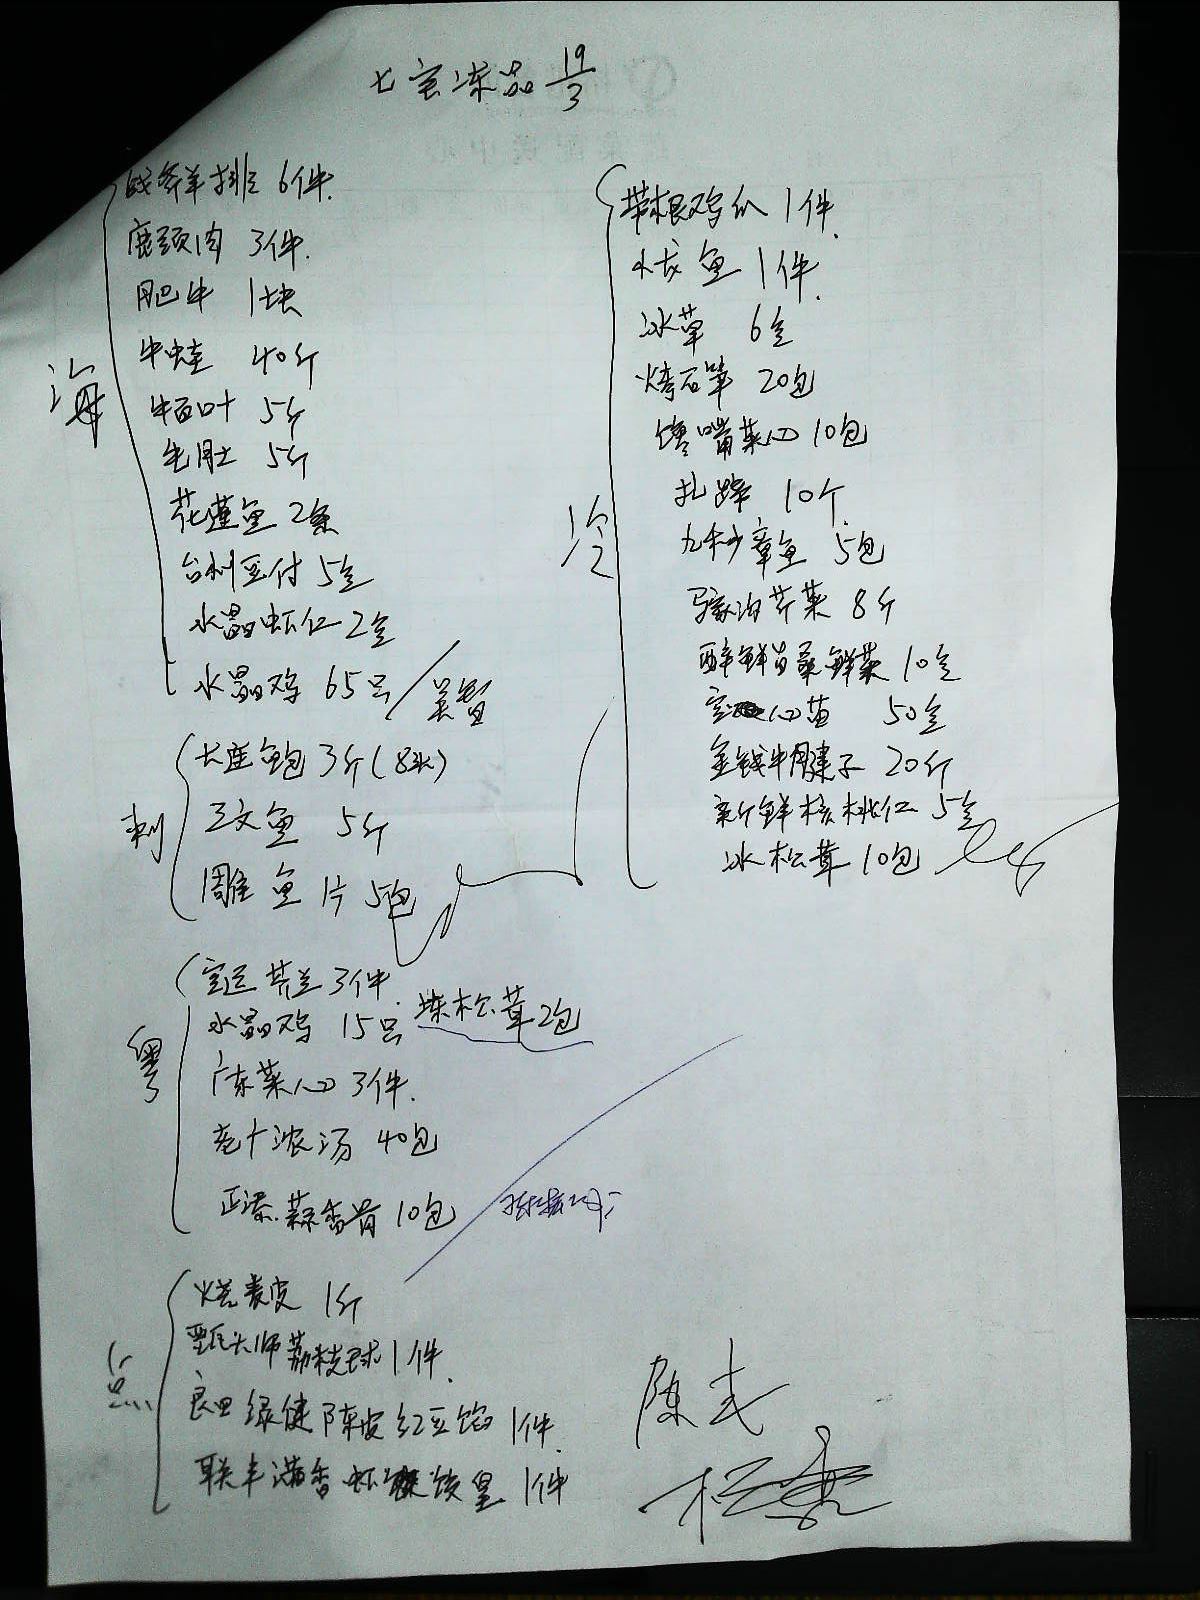 七宝冻品 19/3
海
战斧羊排 6件
鹿颈肉 3件
肥牛 1块
牛蛙 40斤
牛百叶 5斤
毛肚 5斤
花莲鱼 2条
台州豆付 5盒
水晶虾仁 2盒
水晶鸡 65只
刺
大连鲍 3斤(8头)
三文鱼 5斤
雕鱼片 5包
粤
空运芥兰 3件
水晶鸡 15只 冻松茸2包
广东菜心 3件
老才浓汤 40包
正添蒜香骨 10包
点
烧麦皮 1斤
甄大师荔枝球 1件
良田绿健陈皮红豆馅 1件
联丰满香虾饺皇 1件
冷
带根鸡爪 1件
水龙鱼 1件
冰草 6盒
烤石笋 20包
馋嘴菜心 10包
扎蹄 10个
九秒章鱼 5包
马家沟芹菜 8斤
醉鲜昌桑鲜菜 10盒
心苗 50盒
金钱牛腱子 20斤
新鲜核桃仁 5盒
冰松茸 10包
陈武